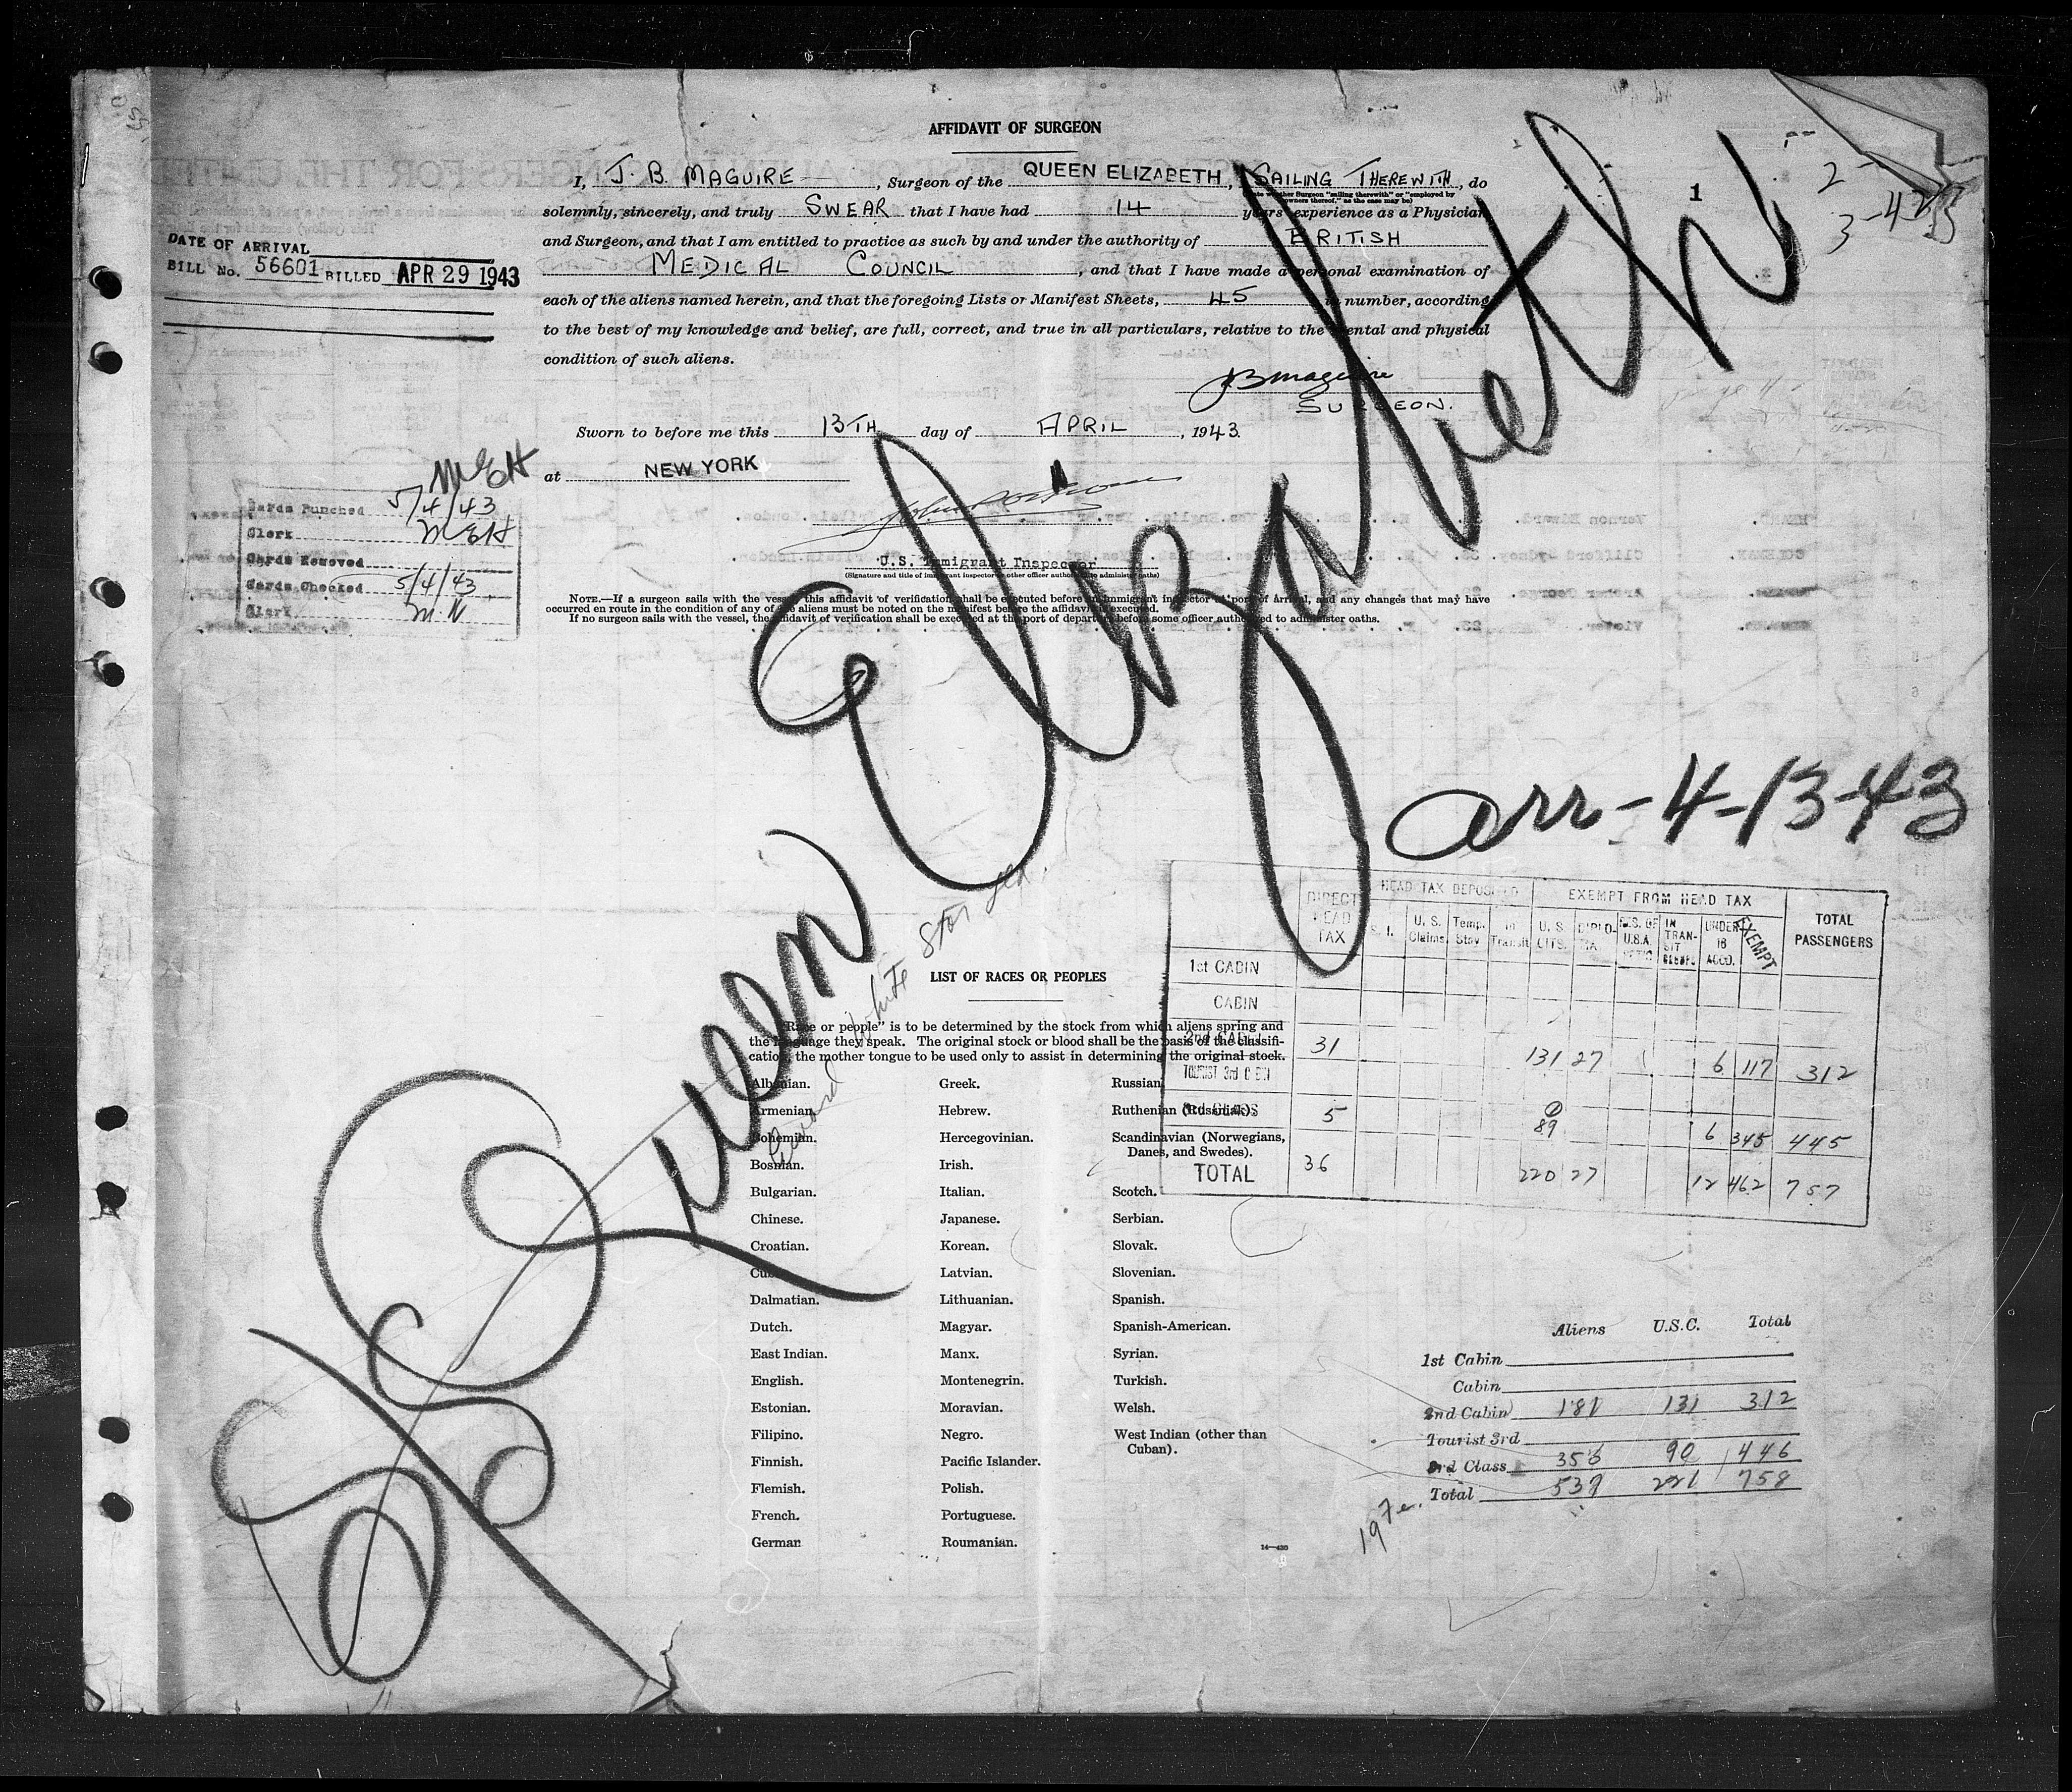 AFFIDAVIT OF SURGEON
I, J. B. MAGUIRE, Surgeon of the QUEEN ELIZABETH, SAILING THEREWITH, do
solemnly, sincerely, and truly SWEAR that I have had 14 years experience as a Physician
and Surgeon, and that I am entitled to practice as such by and under the authority of BRITISH
MEDICAL COUNCIL, and that I have made a personal examination of
each of the aliens named herein, and that the foregoing Lists or Manifest Sheets, 45 in number, according
to the best of my knowledge and belief, are full, correct, and true in all particulars, relative to the mental and physical
condition of such aliens.
JBMaguire
SURGEON.
Sworn to before me this 13TH day of APRIL, 1943.
at NEW YORK
U.S. Immigrant Inspector
(Signature and title of immigrant inspector or other officer authorized to administer oaths)
NOTE.—If a surgeon sails with the vessel, this affidavit of verification shall be executed before an immigrant inspector at port of Arrival, and any changes that may have
occurred en route in the condition of any of the aliens must be noted on the manifest before the affidavit is executed.
If no surgeon sails with the vessel, the affidavit of verification shall be executed at the port of departure before some officer authorized to administer oaths.
1
DATE OF ARRIVAL
BILL No. 56601 BILLED APR 29 1943
MEH
Cards Punched 5/4/43
Clerk MEH
Cards Removed
Cards Checked 5/4/43
Clerk M.N
SS Queen Elizabeth
arr-4-13-43
Cunard White Star Ltd.
DIRECT HEAD TAX
HEAD TAX DEPOSITED
EXEMPT FROM HEAD TAX
TOTAL PASSENGERS
S. I. U. S. Claims Temp. Stay In Transit U. S. CITS. DIPLO- IN TRAN- SIT UNDER 16 ACCO. EXEMPT
1st CABIN
CABIN
2nd CABIN 31 131 27 6 117 312
TOURIST 3rd
3rd CLASS 5 89 6 345 445
TOTAL 36 220 27 12 462 757
LIST OF RACES OR PEOPLES
"Race or people" is to be determined by the stock from which aliens spring and
the language they speak. The original stock or blood shall be the basis of the classifi-
cation, the mother tongue to be used only to assist in determining the original stock.
Albanian.
Armenian.
Bohemian.
Bosnian.
Bulgarian.
Chinese.
Croatian.
Cuban.
Dalmatian.
Dutch.
East Indian.
English.
Estonian.
Filipino.
Finnish.
Flemish.
French.
German
Greek.
Hebrew.
Hercegovinian.
Irish.
Italian.
Japanese.
Korean.
Latvian.
Lithuanian.
Magyar.
Manx.
Montenegrin.
Moravian.
Negro.
Pacific Islander.
Polish.
Portuguese.
Roumanian.
Russian
Ruthenian (Russniak).
Scandinavian (Norwegians,
Danes, and Swedes).
Scotch.
Serbian.
Slovak.
Slovenian.
Spanish.
Spanish-American.
Syrian.
Turkish.
Welsh.
West Indian (other than
Cuban).
Aliens U.S.C. Total
1st Cabin
Cabin
2nd Cabin 181 131 312
Tourist 3rd
3rd Class 356 90 446
Total 537 221 758